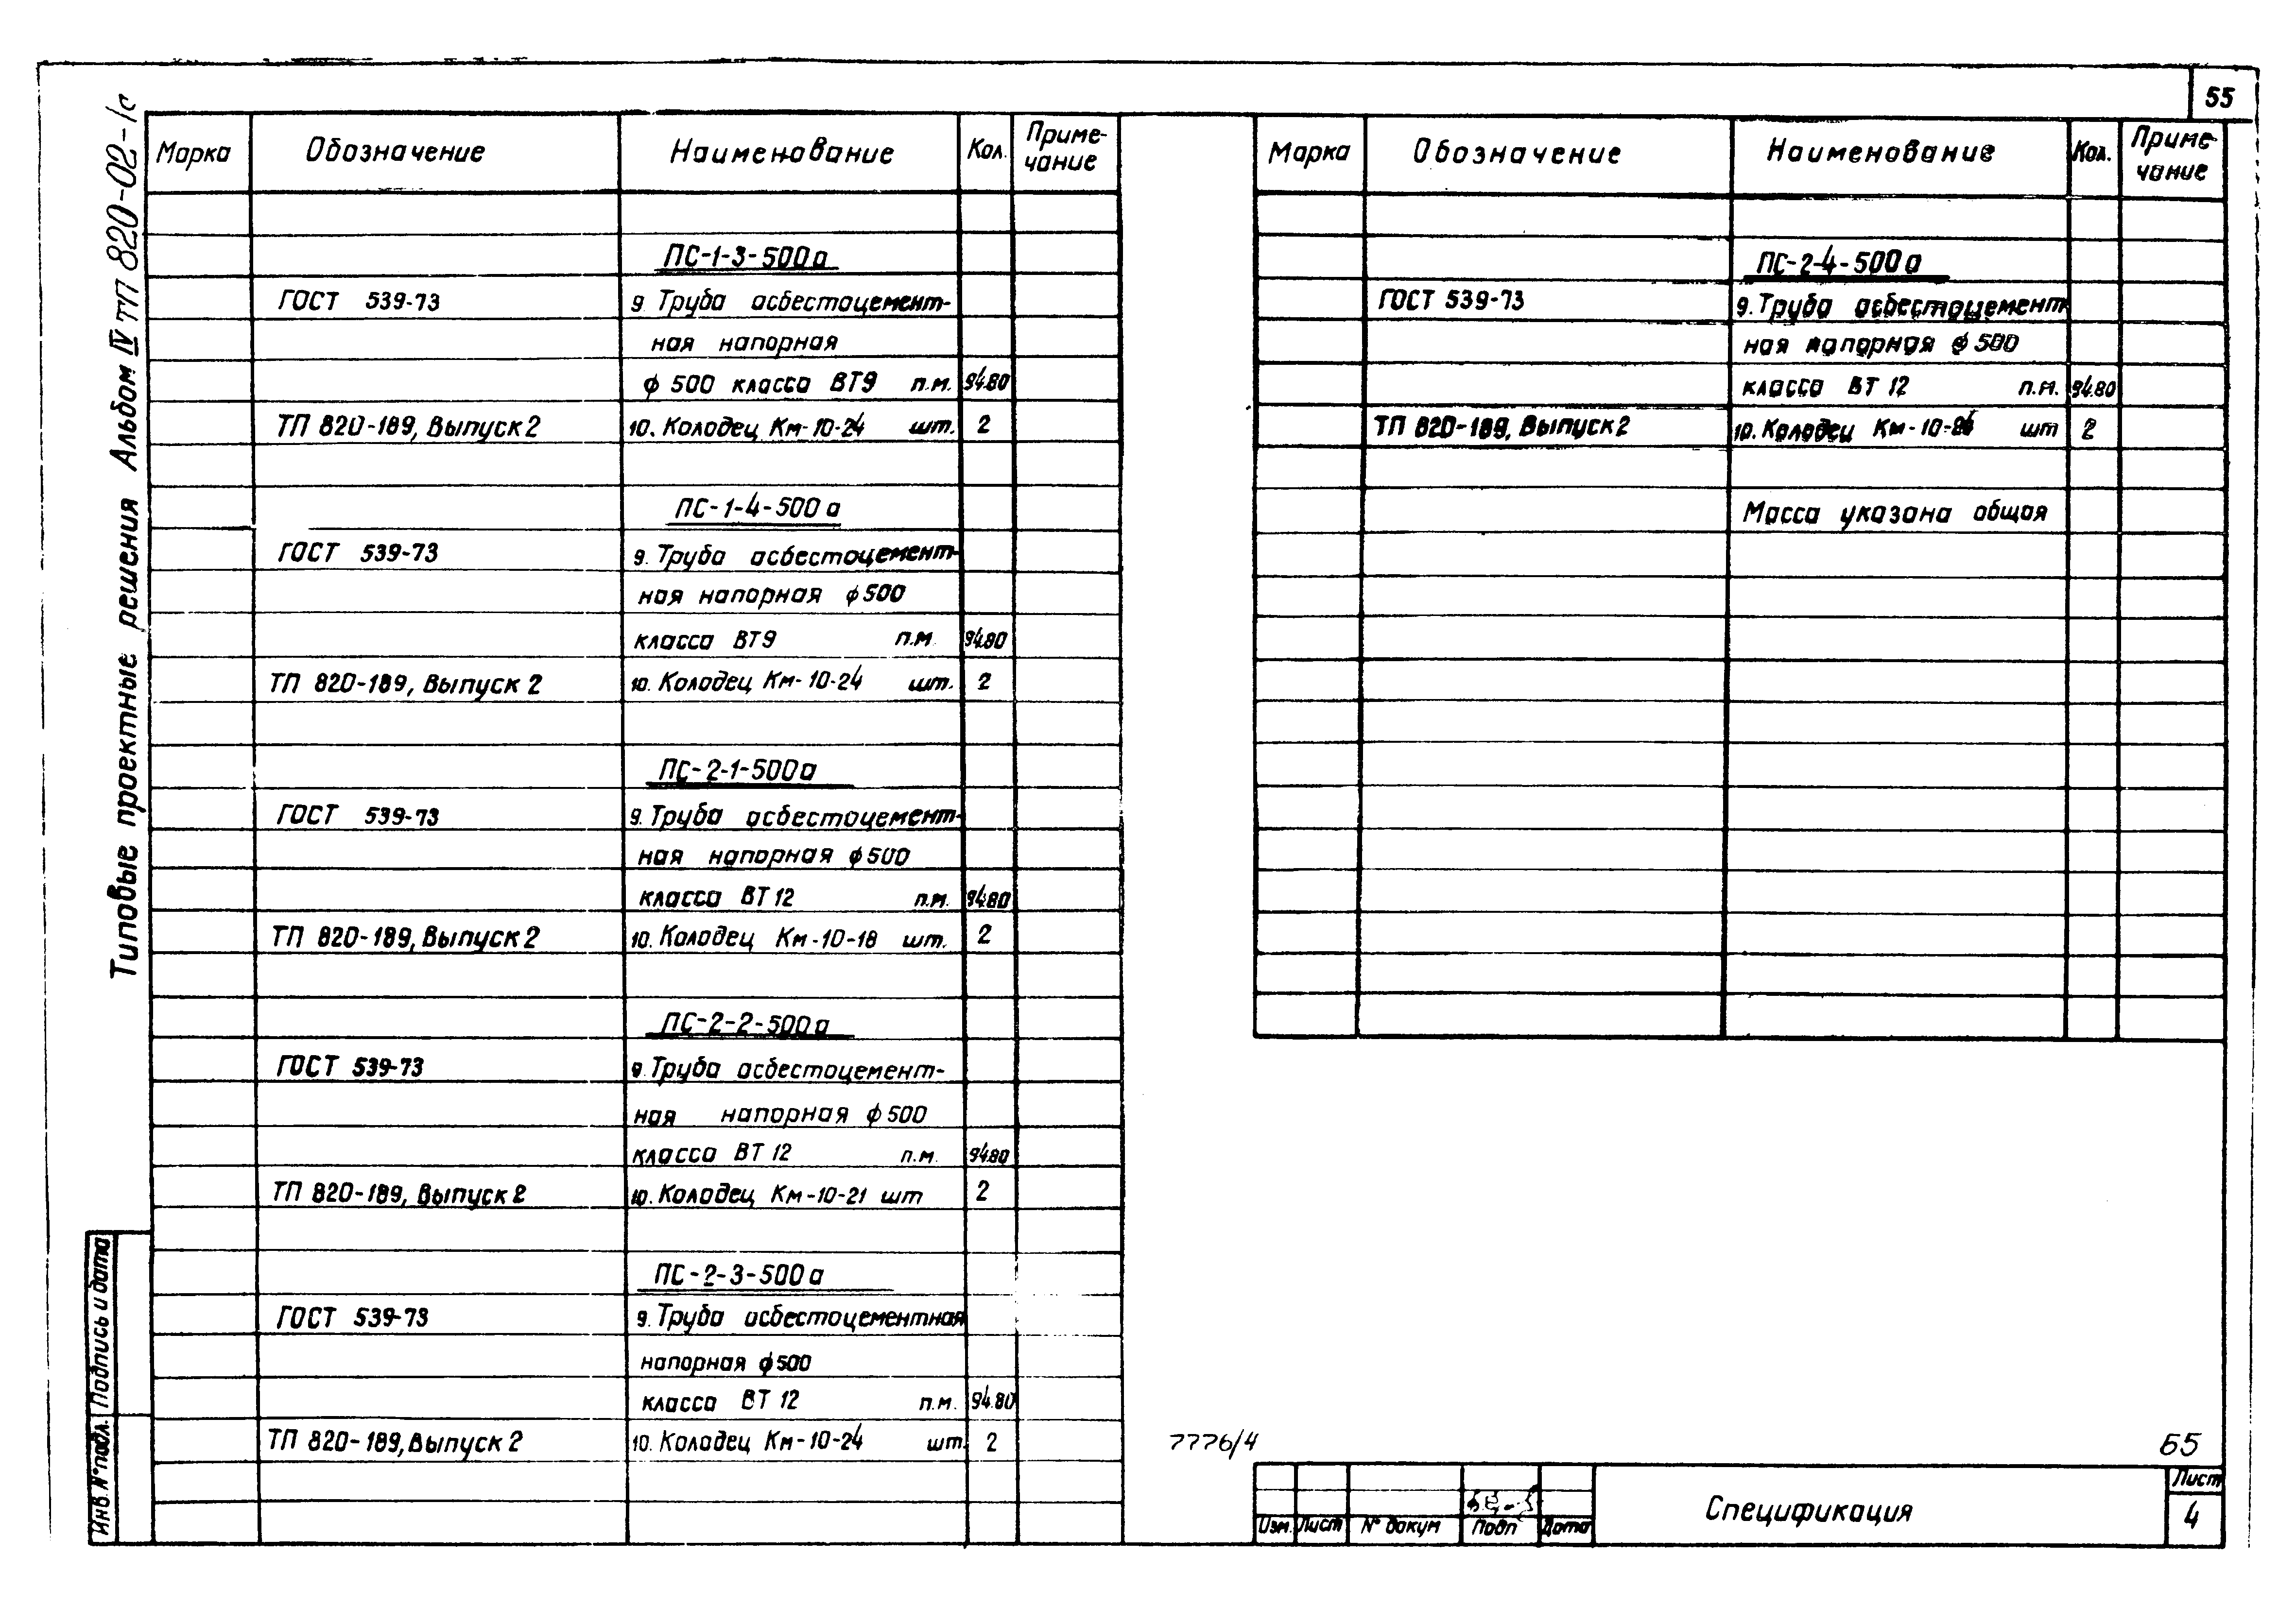 55
Типовые проектные решения Альбом IV ТП 820-02-1с
Марка Обозначение Наименование Кол. Приме-
чание
ПС-1-3-500а
ГОСТ 539-73 9. Труба асбестоцемент-
ная напорная
ф 500 класса ВТ9 п.м. 94.80
ТП 820-189, Выпуск 2 10. Колодец Км-10-24 шт. 2
ПС-1-4-500а
ГОСТ 539-73 9. Труба асбестоцемент-
ная напорная ф500
класса ВТ9 п.м. 94.80
ТП 820-189, Выпуск 2 10. Колодец Км-10-24 шт. 2
ПС-2-1-500а
ГОСТ 539-73 9. Труба асбестоцемент-
ная напорная ф500
класса ВТ 12 п.м. 94.80
ТП 820-189, Выпуск 2 10. Колодец Км-10-18 шт. 2
ПС-2-2-500а
ГОСТ 539-73 9. Труба асбестоцемент-
ная напорная ф500
класса ВТ 12 п.м. 94.80
ТП 820-189, Выпуск 2 10. Колодец Км-10-21 шт 2
ПС-2-3-500а
ГОСТ 539-73 9. Труба асбестоцементная
напорная ф500
класса ВТ 12 п.м. 94.80
ТП 820-189, Выпуск 2 10. Колодец Км-10-24 шт. 2
Марка Обозначение Наименование Кол. Приме-
чание
ПС-2-4-500а
ГОСТ 539-73 9. Труба асбестоцемент
ная напорная ф 500
класса ВТ 12 п.м. 94.80
ТП 820-189, Выпуск 2 10. Колодец Км-10- шт 2
Масса указана общая
Инв. № подл. Подпись и дата
7776/4
55
Изм. Лист № докум Подп Дата
Спецификация
Лист
4